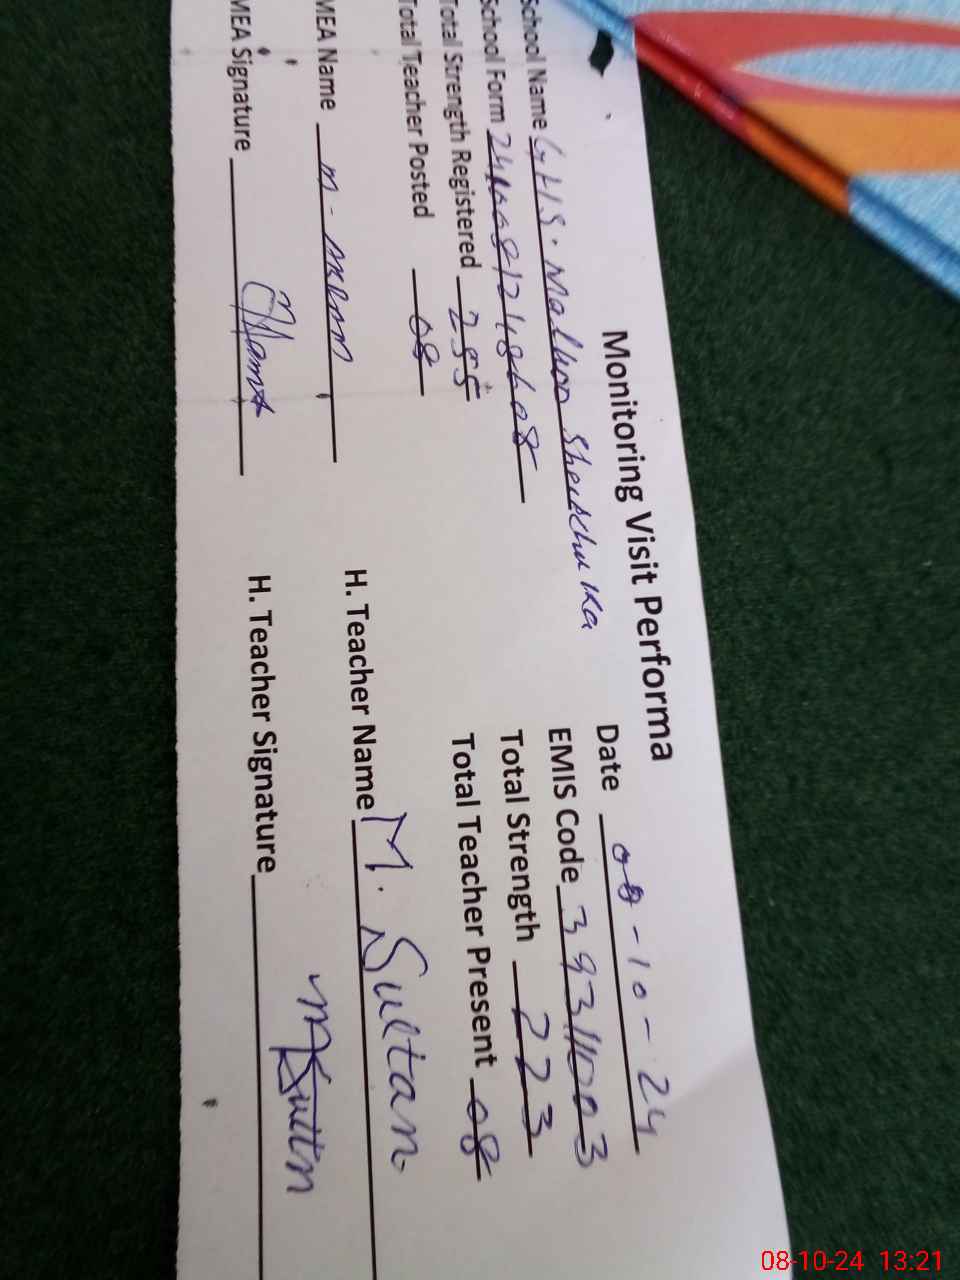 Monitoring Visit Performa
Date 08-10-24
School Name GHS. Sheikhu Ka
EMIS Code 39311003
School Form
Total Strength 223
Total Strength Registered 255
Total Teacher Present 08
Total Teacher Posted 08
MEA Name m.
H. Teacher Name M. Sultan
MEA Signature
H. Teacher Signature MSultan
08-10-24 13:21